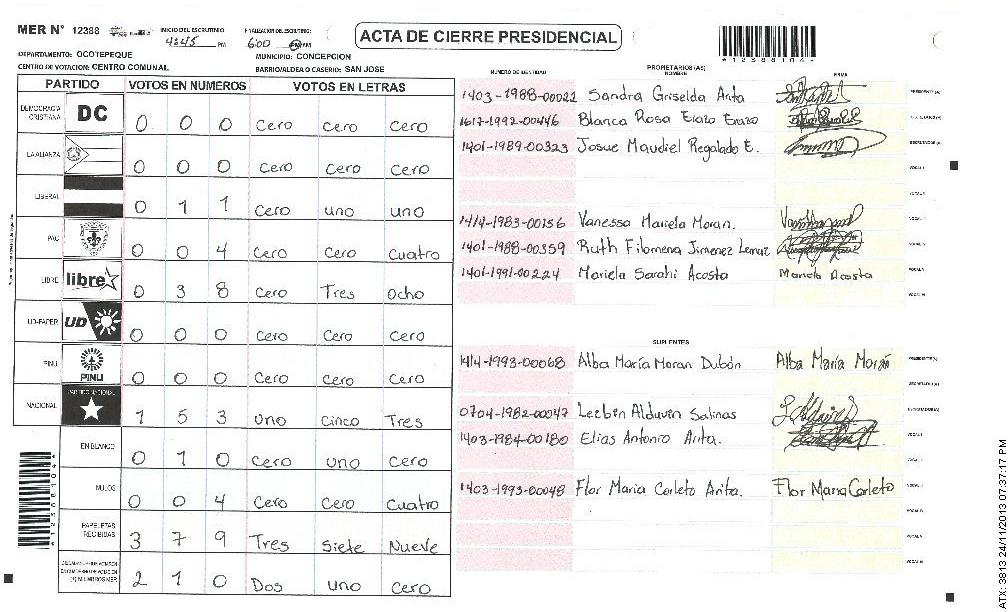 MER N° 12388
INICIO DEL ESCRUTINIO 4:45 PM
FINALIZACION DEL ESCRUTINIO: 6:00 PM
ACTA DE CIERRE PRESIDENCIAL
DEPARTAMENTO: OCOTEPEQUE
MUNICIPIO: CONCEPCION
CENTRO DE VOTACION: CENTRO COMUNAL
BARRIO/ALDEA O CASERIO: SAN JOSE
*12388104*
PARTIDO VOTOS EN NUMEROS VOTOS EN LETRAS
DEMOCRACIA CRISTIANA DC 0 0 0 Cero cero cero
LA ALIANZA 0 0 0 Cero Cero Cero
LIBERAL 0 1 1 Cero uno uno
PAC 0 0 4 Cero Cero Cuatro
LIBRE libre 0 3 8 Cero Tres Ocho
UD-FAPER UD 0 0 0 Cero Cero Cero
PINU PINU 0 0 0 Cero Cero Cero
NACIONAL PARTIDO NACIONAL 1 5 3 uno Cinco Tres
EN BLANCO 0 1 0 Cero uno Cero
NULOS 0 0 4 Cero Cero Cuatro
PAPELETAS RECIBIDAS 3 7 9 Tres Siete Nueve
2 1 0 Dos uno Cero
*12388104*
NUMERO DE IDENTIDAD PROPIETARIOS (AS) NOMBRE FIRMA
1403-1988-00022 Sandra Griselda Arita PRESIDENTE (A)
1617-1992-00446 Blanca Rosa Erazo Erazo SECRETARIO (A)
1401-1989-00323 Josue Maudiel Regalado E. ESCRUTADOR (A)
VOCAL I
VOCAL II
1414-1983-00156 Vanessa Mariela Moran.
1401-1988-00359 Ruth Filomena Jimenez
1401-1991-00224 Mariela Sarahi Acosta Mariela Acosta
SUPLENTES
1414-1993-00068 Alba María Moran Dubón Alba María Morán PRESIDENTE (A)
SECRETARIO (A)
0704-1982-00047 Leebin Alduvin Salinas ESCRUTADOR (A)
1403-1984-00180 Elias Antonio Arita.
1403-1993-00048 Flor Maria Corleto Arita. Flor Maria Corleto
ATX: 3813 24/11/2013 07:37:17 PM